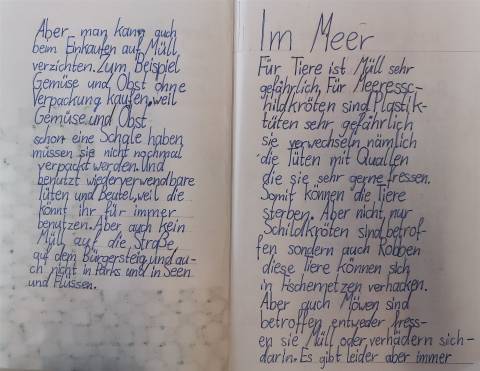 Aber man kann auch
beim Einkaufen auf Müll
verzichten. Zum Beispiel
Gemüse und Obst ohne
Verpackung kaufen, weil
Gemüse und Obst
schon eine Schale haben
müssen sie nicht nochmal
verpackt werden. Und
benutzt wiederverwendbare
Tüten und Beutel, weil die
könnt ihr für immer
benutzen. Aber auch kein
Müll auf die Straße,
auf dem Bürgersteig und au-
ch nicht in Parks und in Seen
und Flüssen.
Im Meer
Für Tiere ist Müll sehr
gefährlich, Für Meeressc-
hildkröten sind Plastik-
tüten sehr gefährlich
sie verwechseln nämlich
die Tüten mit Quallen
die sie sehr gerne fressen.
Somit können die Tiere
sterben. Aber nicht nur
Schildkröten sind betrof-
fen sondern auch Robben
diese Tiere können sich
in Fischernetzen verhacken.
Aber auch Möwen sind
betroffen entweder fress-
en sie Müll oder verhädern sich
darin. Es gibt leider aber immer